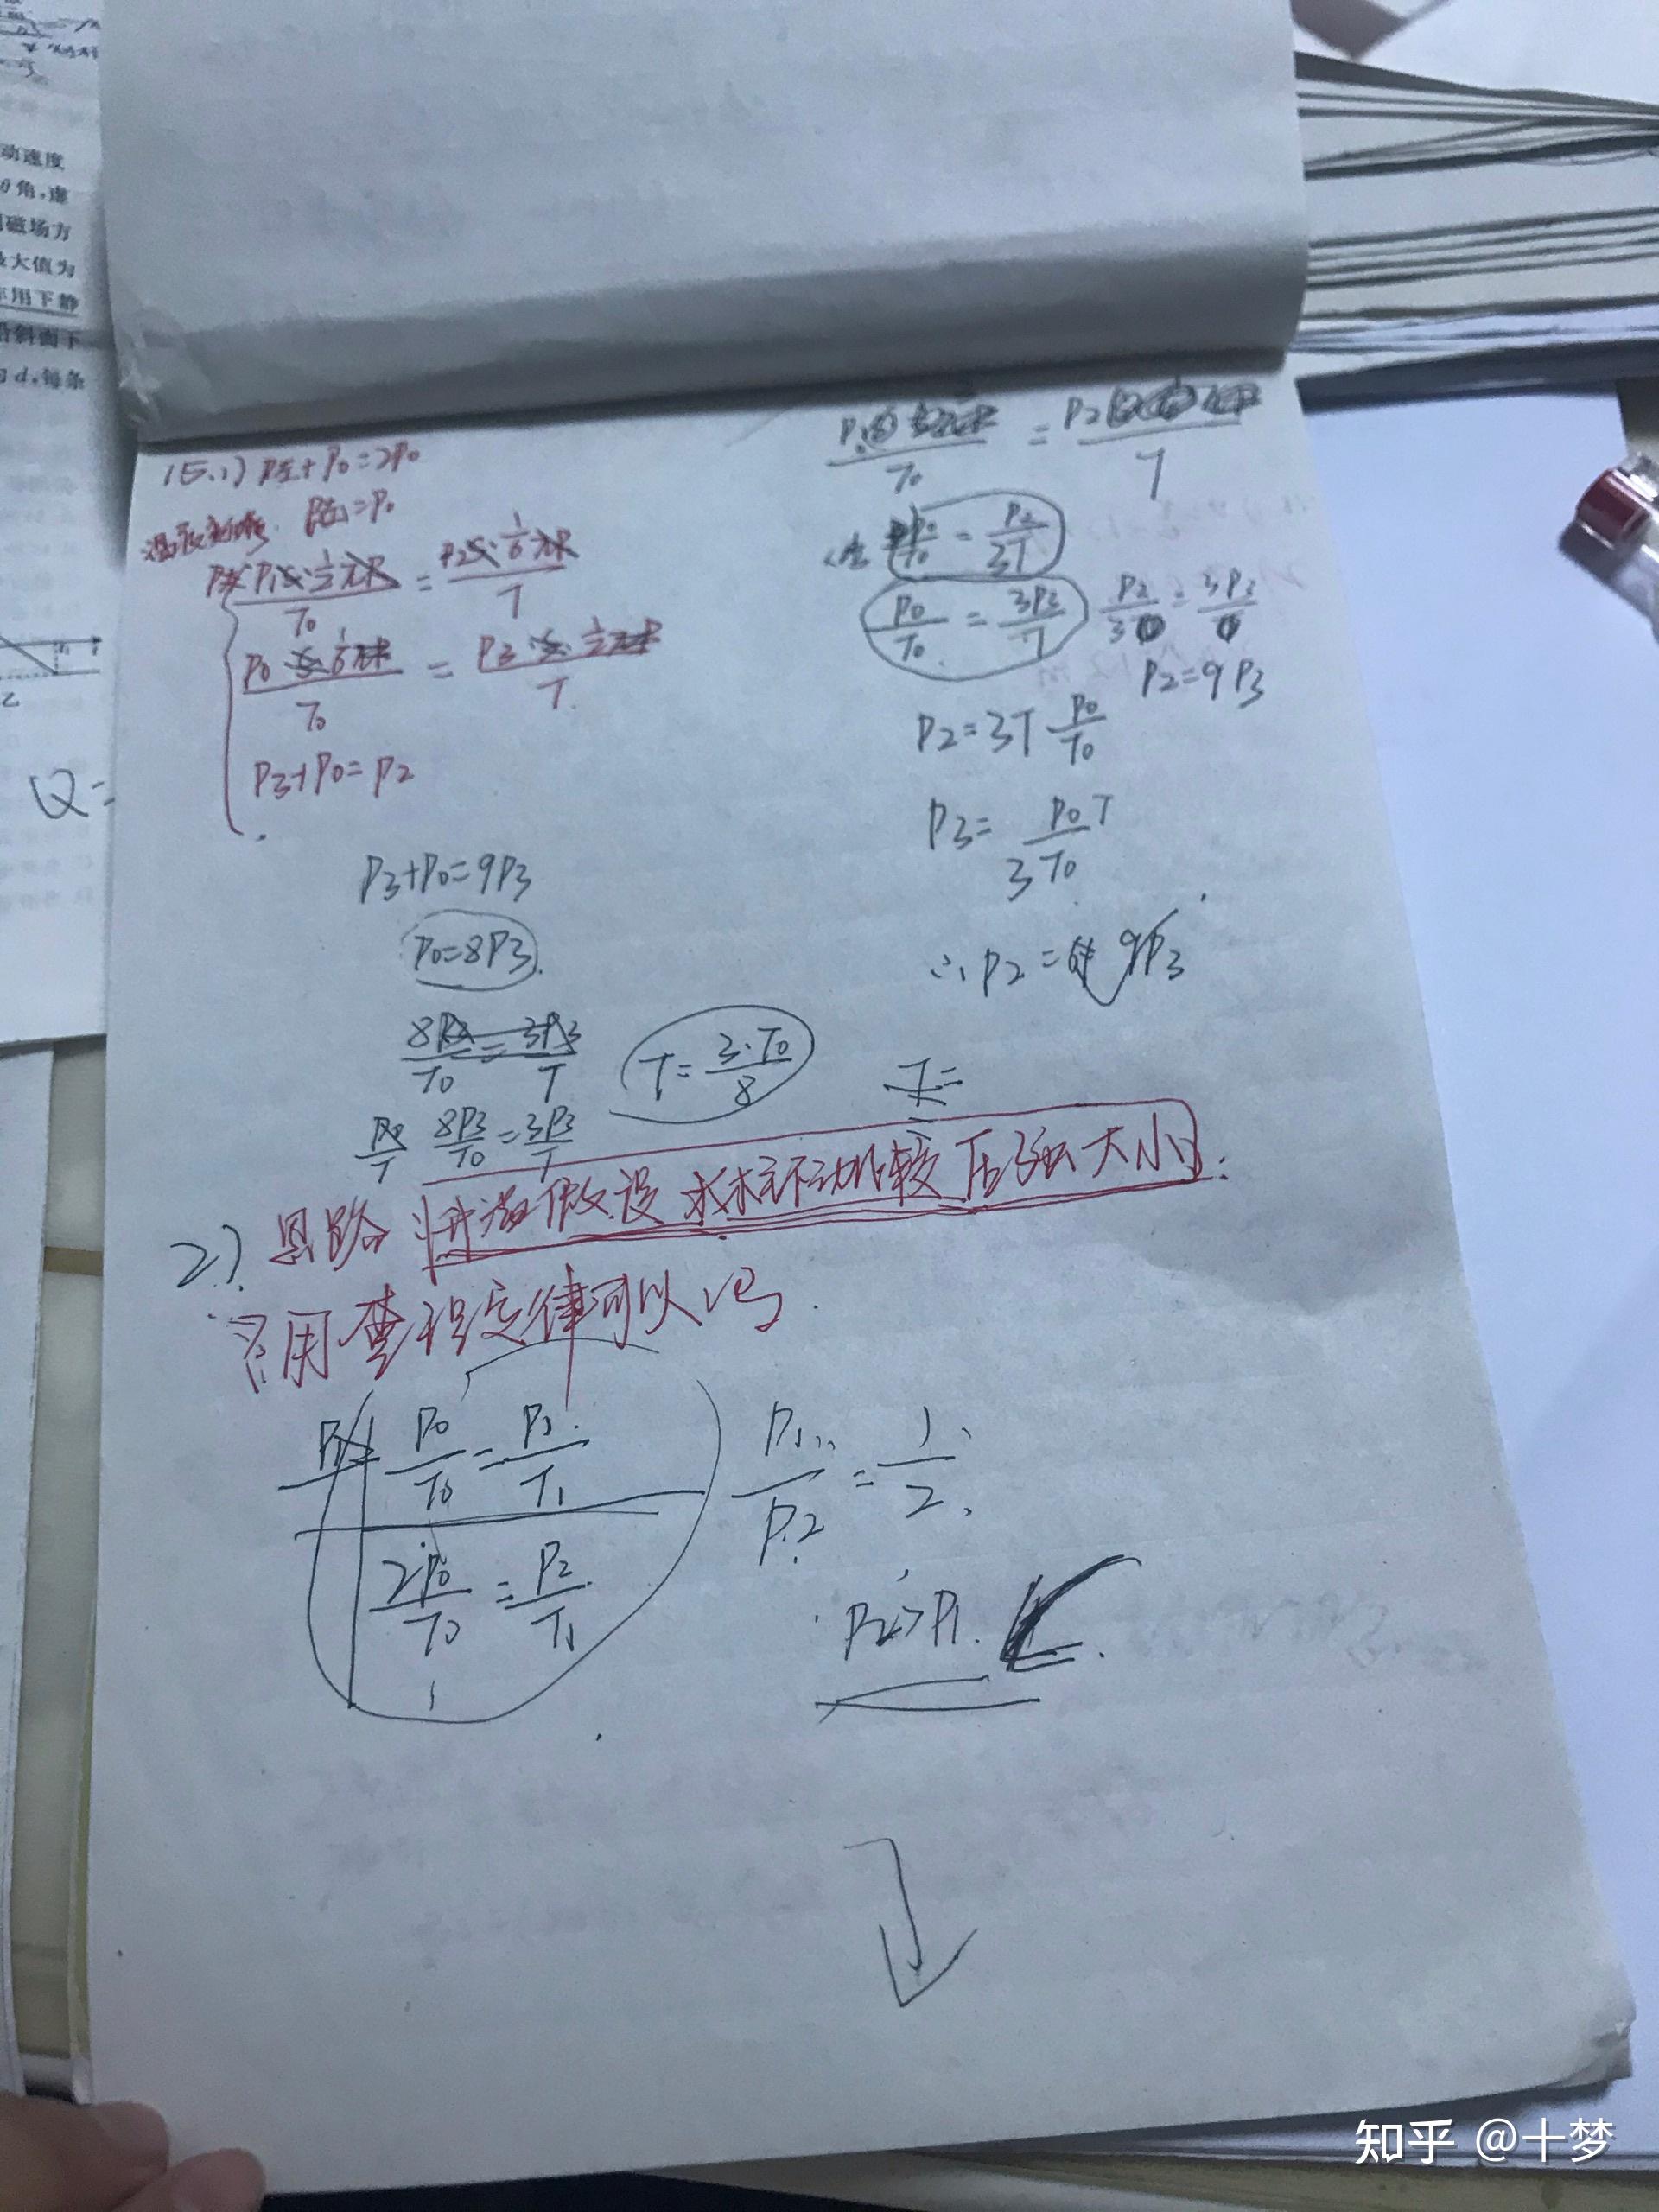 动速度
θ角,虚
磁场方
大值为
用下静
斜面下
d,每条
乙
Q=
15.1) P左+P0=2P0
P左=P0
P1S·1/2πR/T0 = P2S·1/6πR/T
P0·S·1/6πR/T0 = P3·S·1/2πR/T
P3+P0=P2
P3+P0=9P3
P0=8P3.
8P3/T0 = 3P3/T
T=3·T0/8
8P3/T0=3P3/T
P0/T0 = P2/3T
P0/T0 = 3P3/T
P2/3 = 3P3
P2=9P3
P2=3T P0/T0
P3= P0T/3T0
∴P2=9P3
T=
2) 思路 升温假设 求标不动比较 压强大小.
用查理定律可以吗.
P0/T0=P1/T1
2P0/T0=P2/T1
P1/P2=1/2
P2>P1.
知乎 @十梦